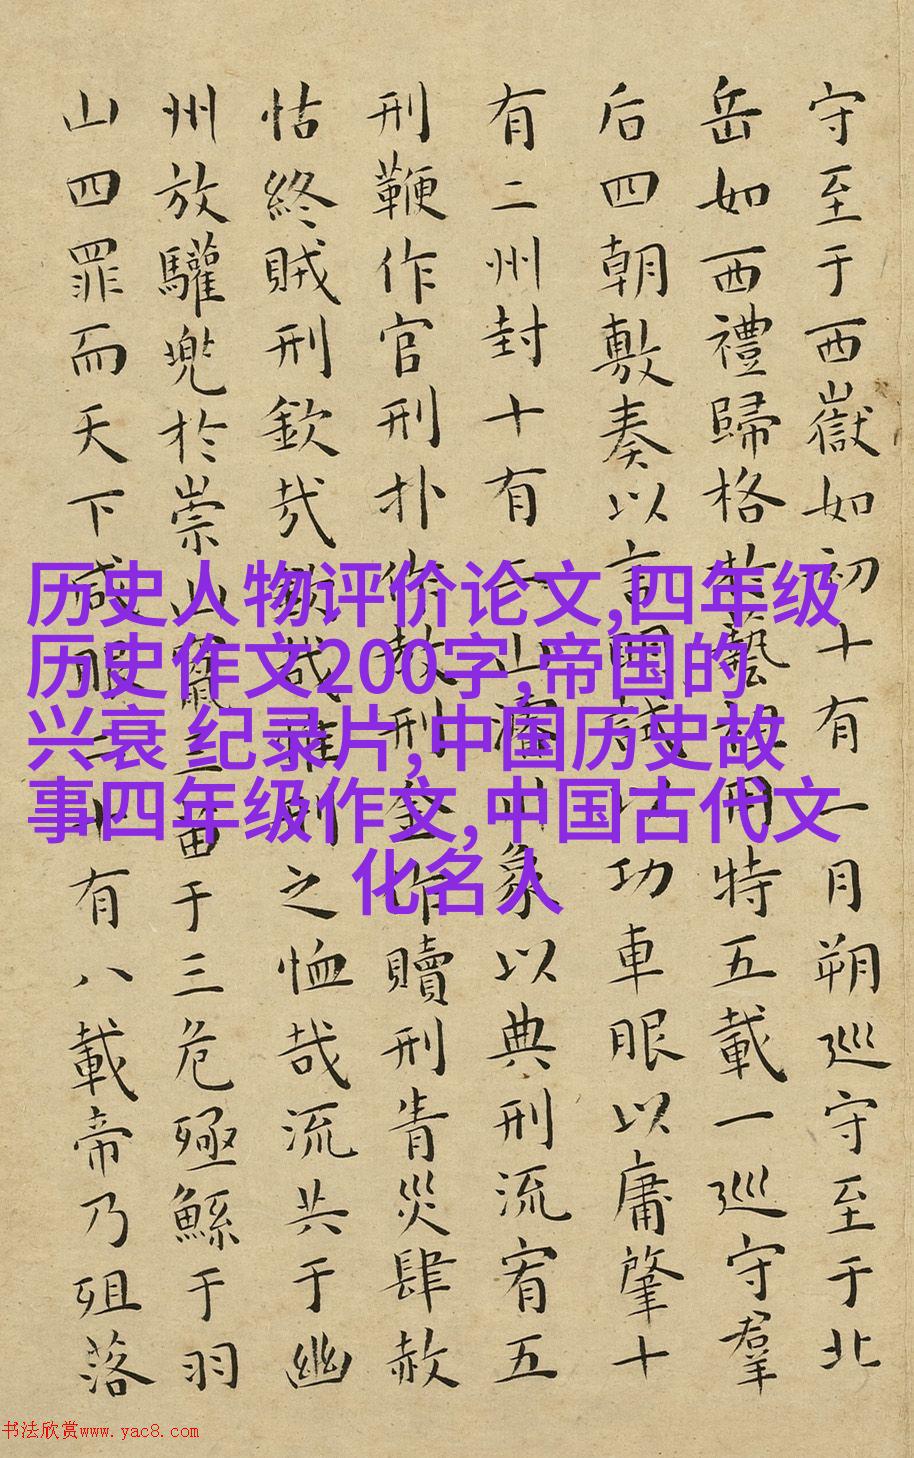 守至于西嶽如初十有一月朔巡守至于北
岳如西禮歸格于藝祖用特五載一巡守羣
后四朝敷奏以言明試以功車眼以庸肇十
有二州封十有二山濬川象以典刑流宥五
刑鞭作官刑扑作教刑金作贖刑眚災肆赦
怙終賊刑欽哉欽哉惟刑之恤哉流共于幽
州放驩兜於崇山竄三苗于三危殛鯀于羽
山四罪而天下咸服二十有八載帝乃殂落
历史人物评价论文,四年级
历史作文200字,帝国的
兴衰 纪录片,中国历史故
事四年级作文,中国古代文
化名人
书法欣赏www.yac8.com